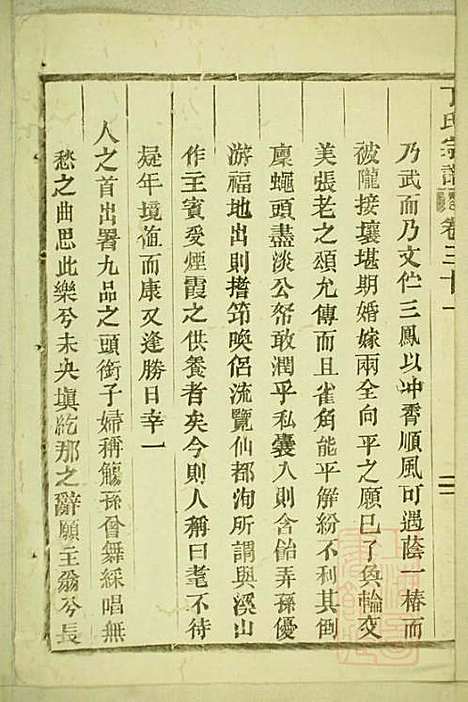 丁氏宗譜 卷三十一
乃武而乃文伫三鳳以冲霄順風可遇蔭一椿而
被隴接壤堪期婚嫁兩全向平之願巳了奐輪交
美張老之頌允傳而且雀角能平解紛不利其倒
廩蠅頭盡淡公帑敢潤乎私囊入則含飴弄孫優
游福地出則擕筇喚侶流覽仙都洵所謂與溪山
作主賓受煙霞之供養者矣今則人稱曰耄不待
疑年境値而康又逢勝日幸一
人之首出署九品之頭銜子婦稱觴孫曾舞綵唱無
愁之曲思此樂兮未央塡紇那之辭願主翁兮長